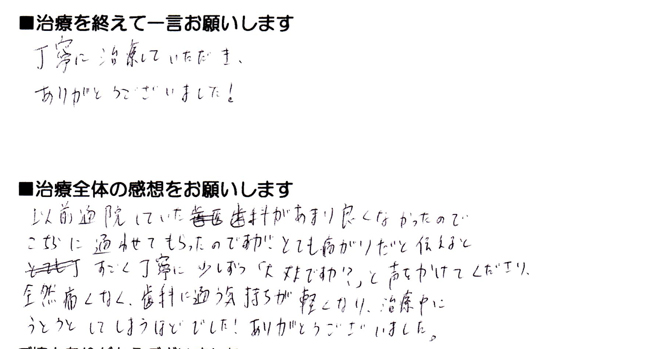 ■治療を終えて一言お願いします
丁寧に治療していただき、
ありがとうございました！
■治療全体の感想をお願いします
以前通院していた歯科があまり良くなかったので
こちらに通わせてもらったのですが、とても痛がりだと伝えると
すごく丁寧に少しずつ「大丈夫ですか?」と声をかけてくださり、
全然痛くなく、歯科に通う気持ちが軽くなり、治療中に
うとうとしてしまうほどでした！ありがとうございました。